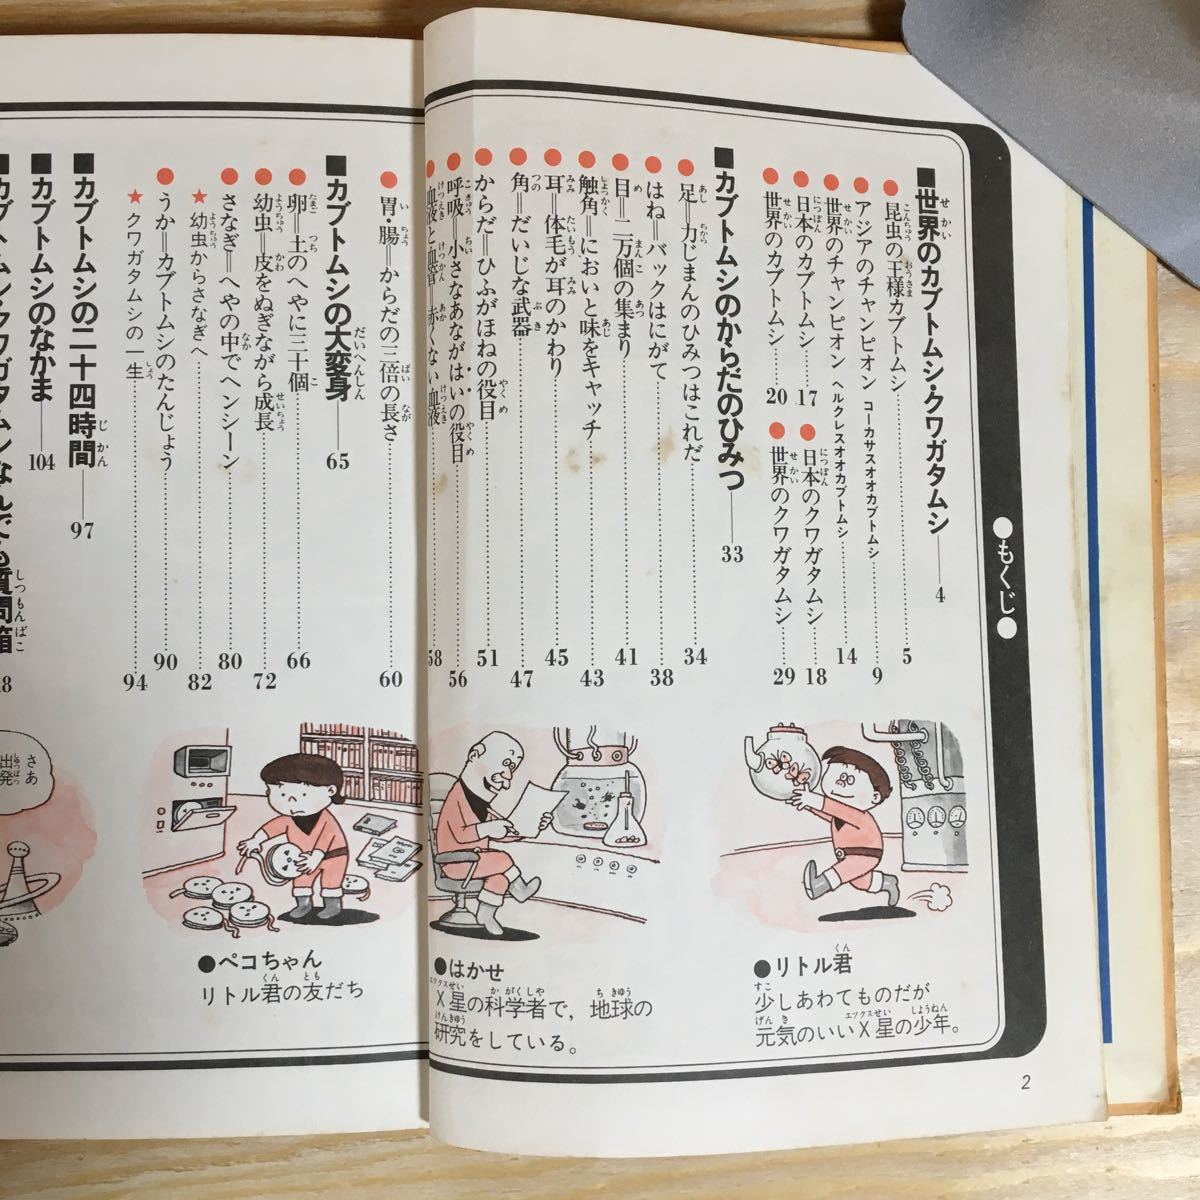 ●もくじ●
■世界のカブトムシ・クワガタムシ——4
●昆虫の王様カブトムシ……5
●アジアのチャンピオン コーカサスオオカブトムシ……9
●世界のチャンピオン ヘルクレスオオカブトムシ……14
●日本のカブトムシ……17
●日本のクワガタムシ……18
●世界のカブトムシ……20
●世界のクワガタムシ……29
■カブトムシのからだのひみつ——33
●足=力じまんのひみつはこれだ……34
●はね=バックはにがて……38
●目=二万個の集まり……41
●触角=においと味をキャッチ……43
●耳=体毛が耳のかわり……45
●角=だいじな武器……47
●からだ=ひふがほねの役目……51
●呼吸=小さなあながはいの役目……56
●血液と血管=赤くない血液……58
●胃・腸=からだの三倍の長さ……60
■カブトムシの大変身——65
●卵=土のへやに三十個……66
●幼虫=皮をぬぎながら成長……72
●さなぎ=へやの中でヘンシーン……80
★幼虫からさなぎへ……82
●うか=カブトムシのたんじょう……90
★クワガタムシの一生……94
■カブトムシの二十四時間——97
■カブトムシのなかま——104
●リトル君
少しあわてものだが
元気のいいX星の少年。
●はかせ
X星の科学者で，地球の
研究をしている。
●ペコちゃん
リトル君の友だち
さあ
出発
2